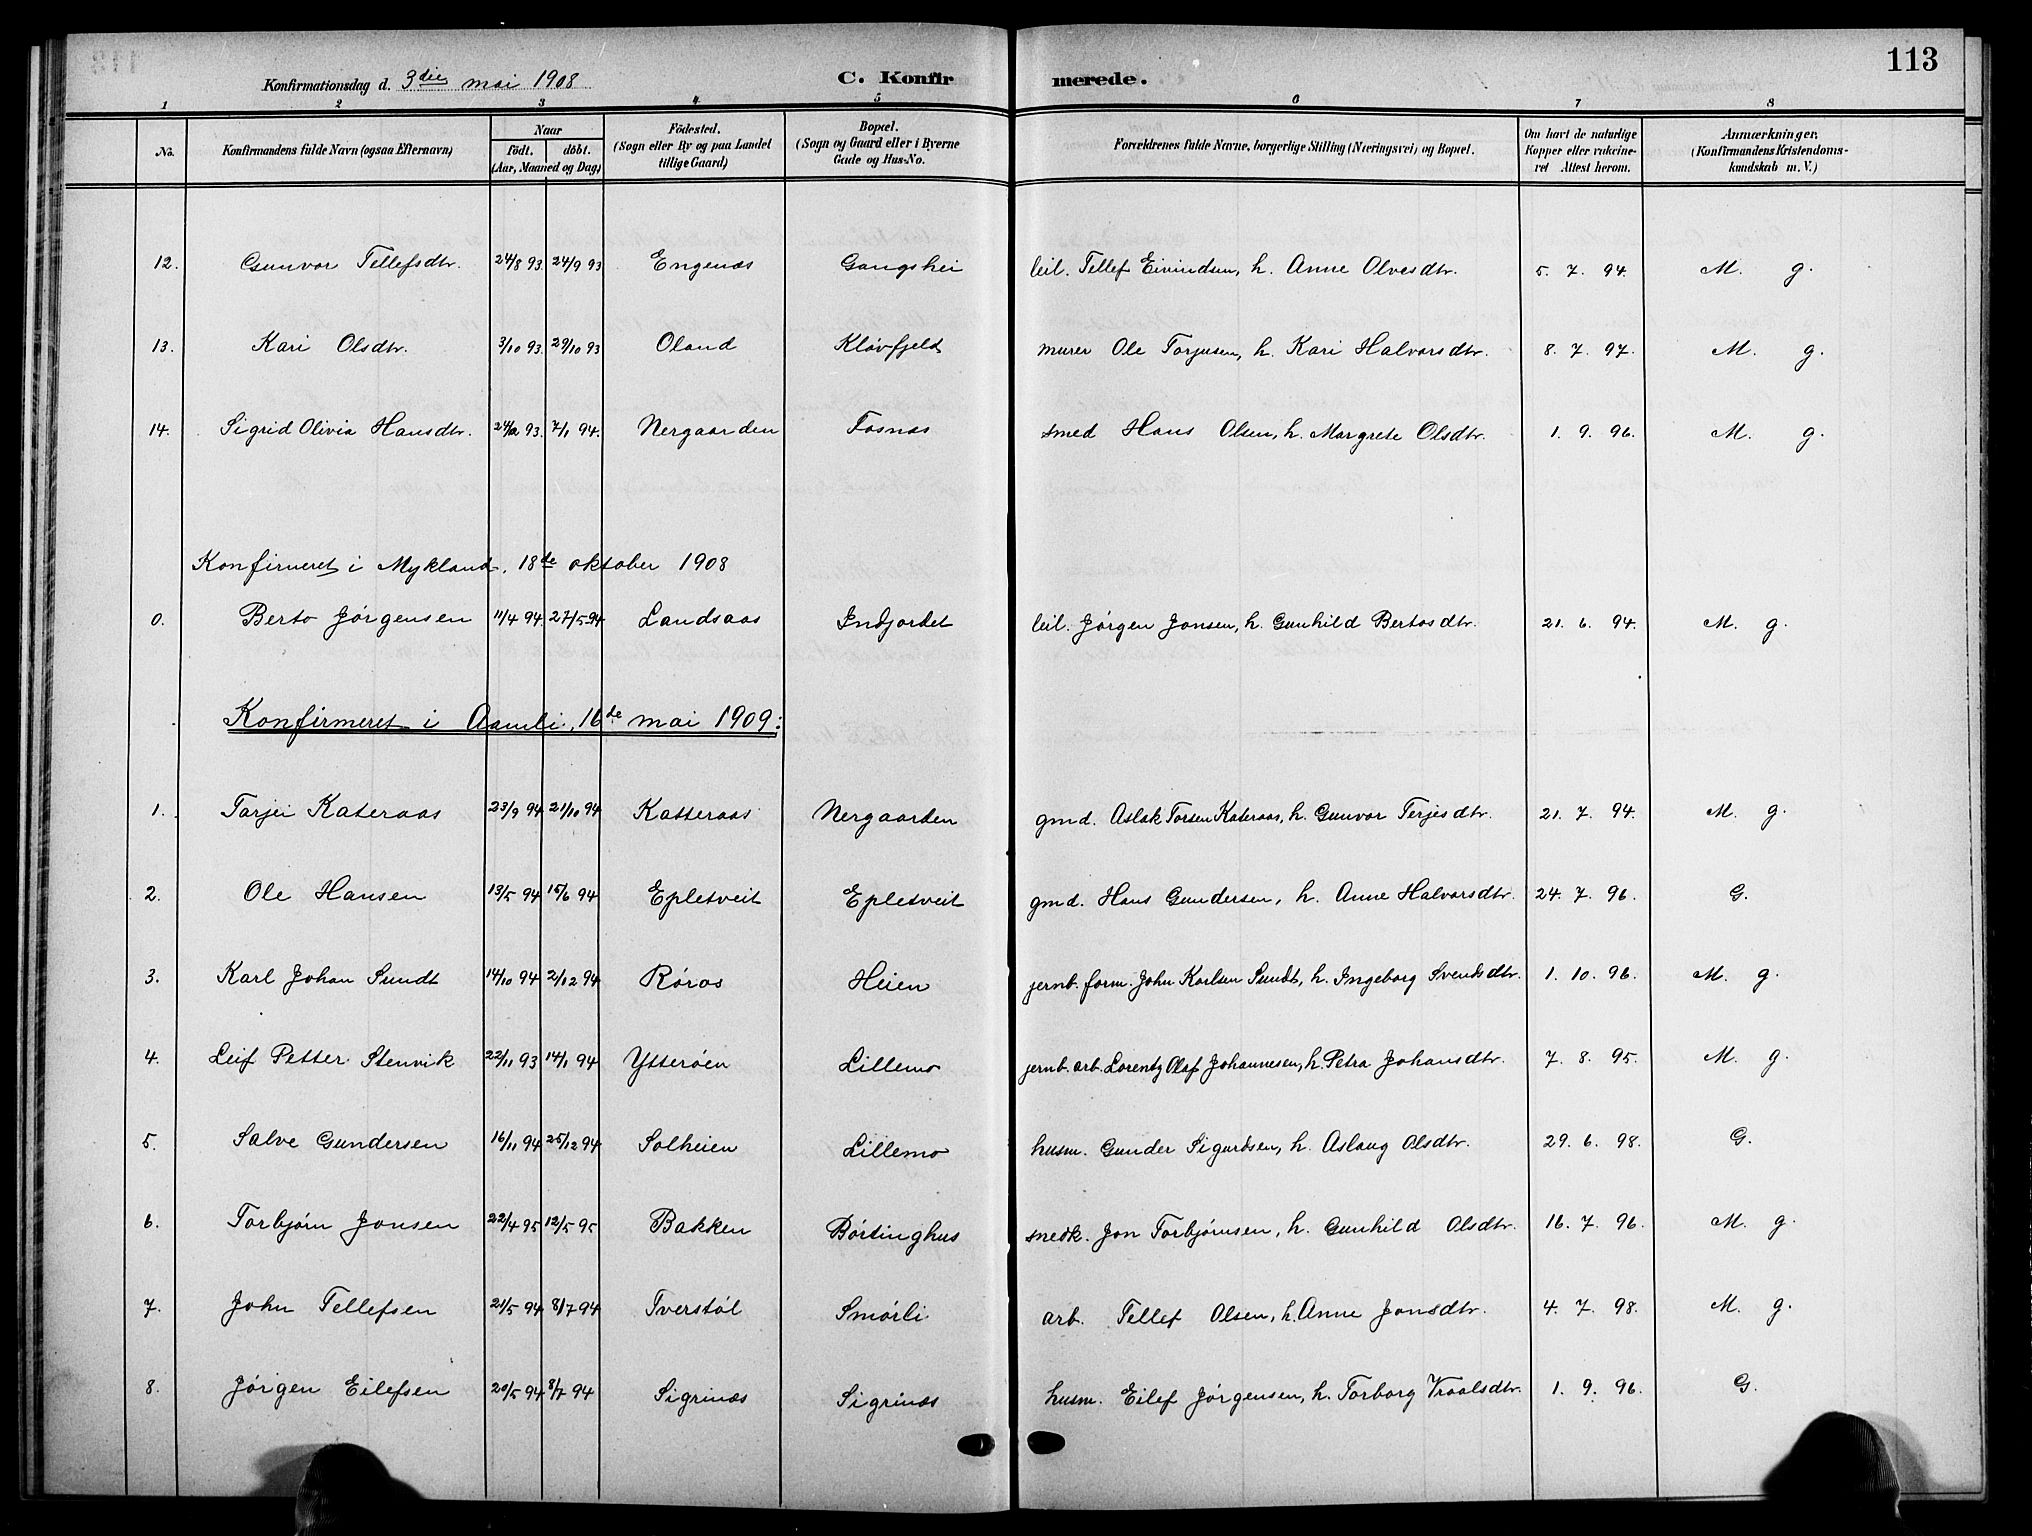 113
Konfirmationsdag d. 3die mai 1908
C. Konfir
merede.
1 2 3 4 5 6 7 8
No.
Konfirmandens fulde Navn (ogsaa Efternavn)
Naar
født. døbt.
(Aar, Maaned og Dag)
Fødested.
(Sogn eller By og paa Landet
tillige Gaard)
Bopæl.
(Sogn og Gaard eller i Byerne
Gade og Hus-No.
Forældrenes fulde Navne, borgerlige Stilling (Næringsvei) og Bopæl.
Om havt de naturlige
Kopper eller vakcine-
ret Attest herom.
Anmærkninger.
(Konfirmandens Kristendoms-
kundskab m. V.)
12. Gunvor Tellefsdtr. 24/8 93 24/9 93 Engenæs Gangshei leil. Tellef Eivindsen, h. Anne Olvesdtr. 5. 7. 94. M. g.
13. Kari Olsdtr. 3/10 93 29/10 93 Oland Kløvfjeld murer Ole Torjusen, h. Kari Halvorsdtr. 8. 7. 97. M. g.
14. Sigrid Olivia Hansdtr. 93. 7/1 94. Nergaarden Fosnæs smed Hans Olsen, h. Margrete Olsdtr. 1. 9. 96. M. g.
Konfirmeret i Mykland, 18de oktober 1908
0. Berto Jørgensen 11/4 94 27/5 94 Landsaas Indjordet leil. Jørgen Jonsen, h. Gunhild Bertosdtr. 21. 6. 94. M. g.
Konfirmeret i Aamli, 16de mai 1909:
1. Tarjei Kateraas 23/9 94 21/10 94 Katteraas Nergaarden gmd. Aslak Torsen Kateraas, h. Gunvor Terjesdtr. 21. 7. 94. M. g.
2. Ole Hansen 13/5 94 15/6 94 Epletveit Epletveit gmd. Hans Gundersen, h. Anne Halvorsdtr. 24. 7. 96. G.
3. Karl Johan Sundt 14/10 94 2/12 94 Røros Heien jernb. form. John Karlsen Sundt, h. Ingeborg Svendsdtr. 1. 10. 96. M. g.
4. Leif Petter Stenvik 22/11 93 14/1 94 Ytterøen Lillemo jernb. arb. Lorentz Olaf Johannesen, h. Petra Johansdtr. 7. 8. 95. M. g.
5. Salve Gundersen 16/11 94 25/12 94 Solheien Lillemo husm. Gunder Sigurdsen, h. Aslaug Olsdtr. 29. 6. 98. G.
6. Torbjørn Jonsen 22/4 95 12/5 95 Bakken Børtinghus snedk. Jon Torbjørnsen, h. Gunhild Olsdtr. 16. 7. 96. M. g.
7. John Tellefsen 21/5 94 8/7 94 Tverstøl Smørli arb. Tellef Olsen, h. Anne Jonsdtr. 4. 7. 98. M. g.
8. Jørgen Eilefsen 20/5 94 8/7 94 Sigrinæs Sigrinæs husm. Eilef Jørgensen, h. Torborg Vraalsdtr. 1. 9. 96. G.